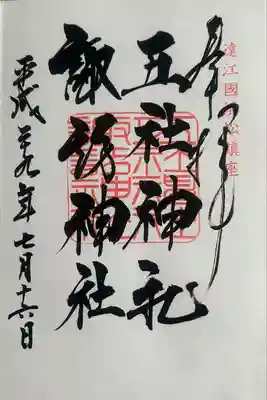 遠江國濱松鎮座
奉拝
五社神社
諏訪神社
平成廿九年七月十六日